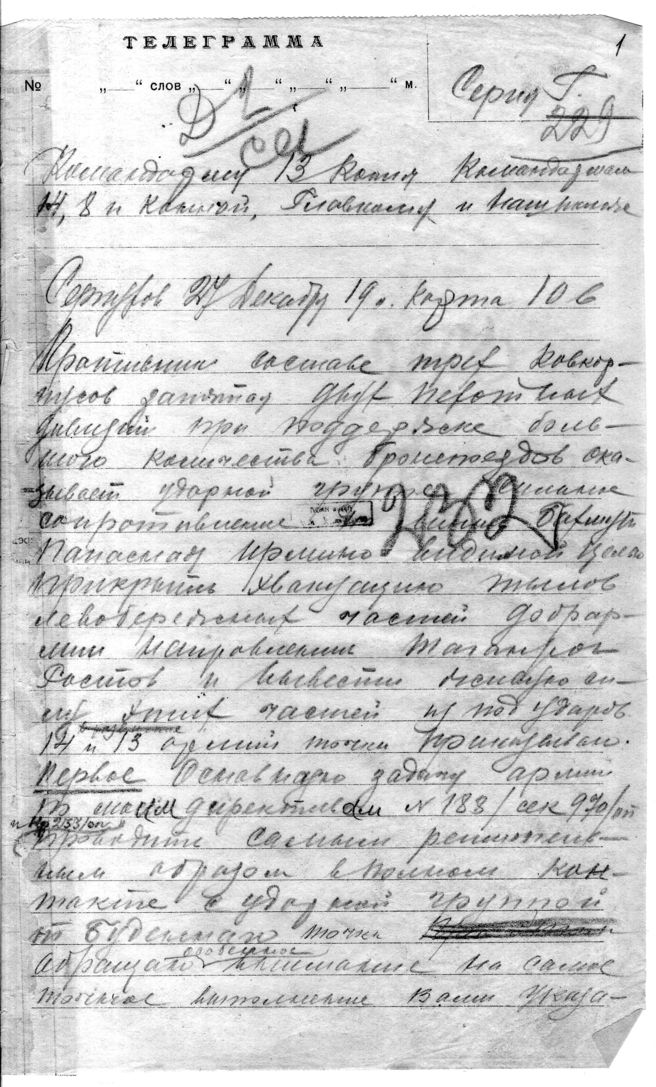 ТЕЛЕГРАММА
1
№ „ “ слов „ “ „ “ „ “ „ “ м.
Серия Г.
229
Командарму 13 Копия Командармам
14, 8 и Конной, Главкому и
Серпухов 24 Декабр 19 г. карта 10 в
Противник составе трех Конкор-
пусов дивизий
дивизий при поддержке боль-
шого количества бронепоездов ока-
зывает ударной группе сильное
сопротивление линии Бахмут
Папасная Ирмино видимой целью
прикрыть эвакуацию тылов
левобережных частей добрар-
мии направлении Таганрог
Ростов и вывести живую си-
лу этих частей из под ударов
14 и 13 армий точка Приказываю.
Первое Основную задачу армии
по моим директивам № 188/сек 970/оп
и № 233/оп
проводить самым решитель-
ным образом в полном кон-
такте с ударной группой
т Буденного точка
особенное
Обращаю внимание на самое
точное выполнение Вами указа-
232